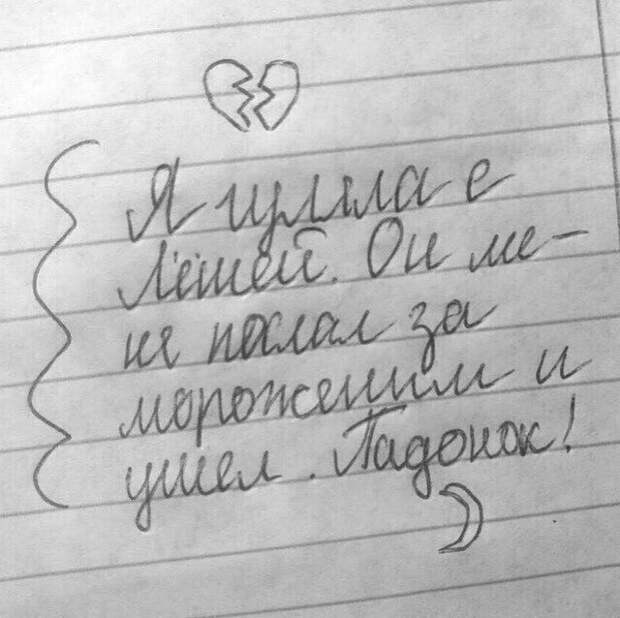 Я гуляла с
Лёшей. Он ме-
ня послал за
мороженим и
ушел. Падонок!